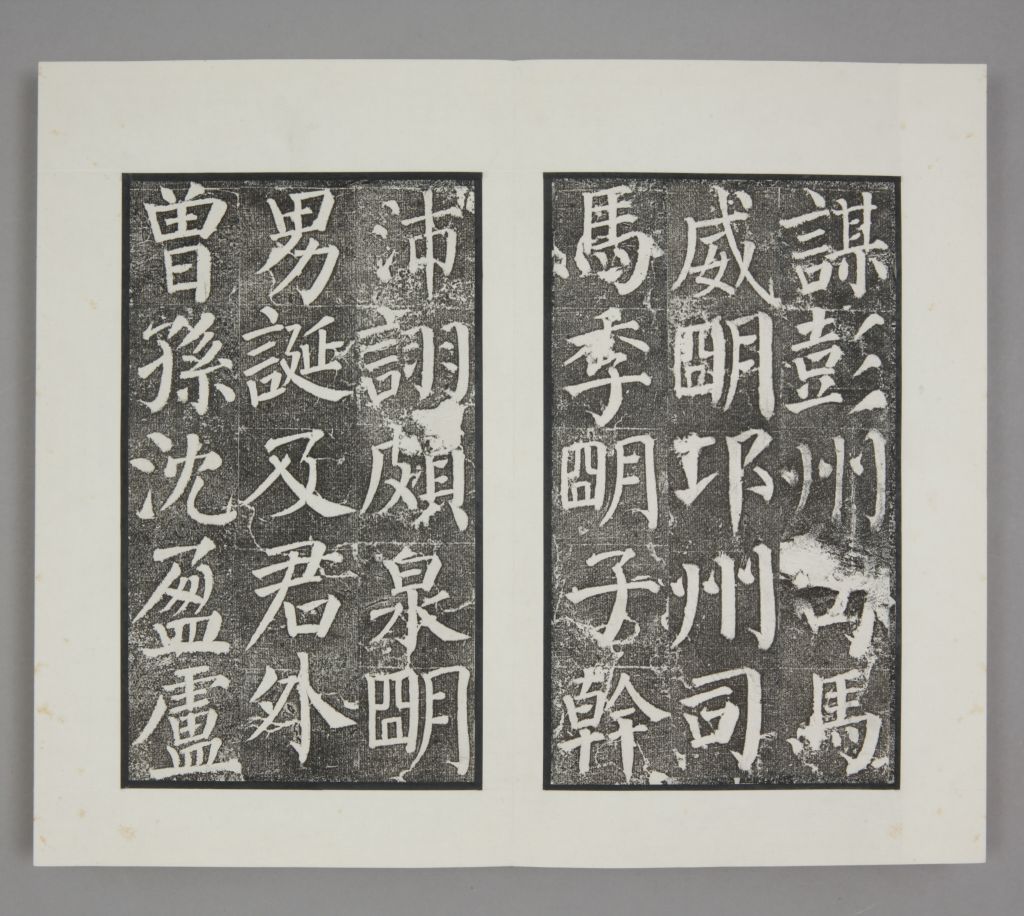 謀彭州司馬
威明邛州司
馬季明子幹
沛詡頗泉明
男誕及君外
曾孫沈盈盧